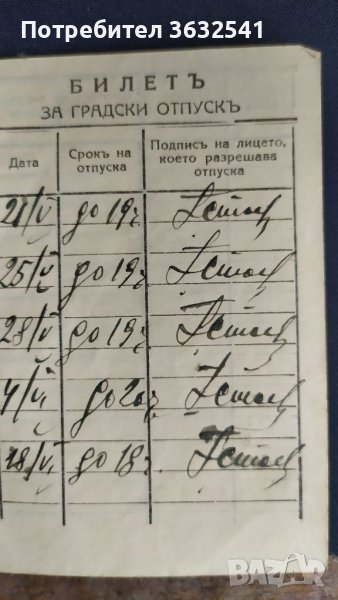 Потребител 3632541
БИЛЕТЪ
ЗА ГРАДСКИ ОТПУСКЪ
Дата
Срокъ на отпуска
Подписъ на лицето, което разрешава отпуска
21/V до 19ч
25/V до 19ч
28/V до 19ч
4/VI до 20ч
18/VI до 18ч
BAZAR
bazar.bg